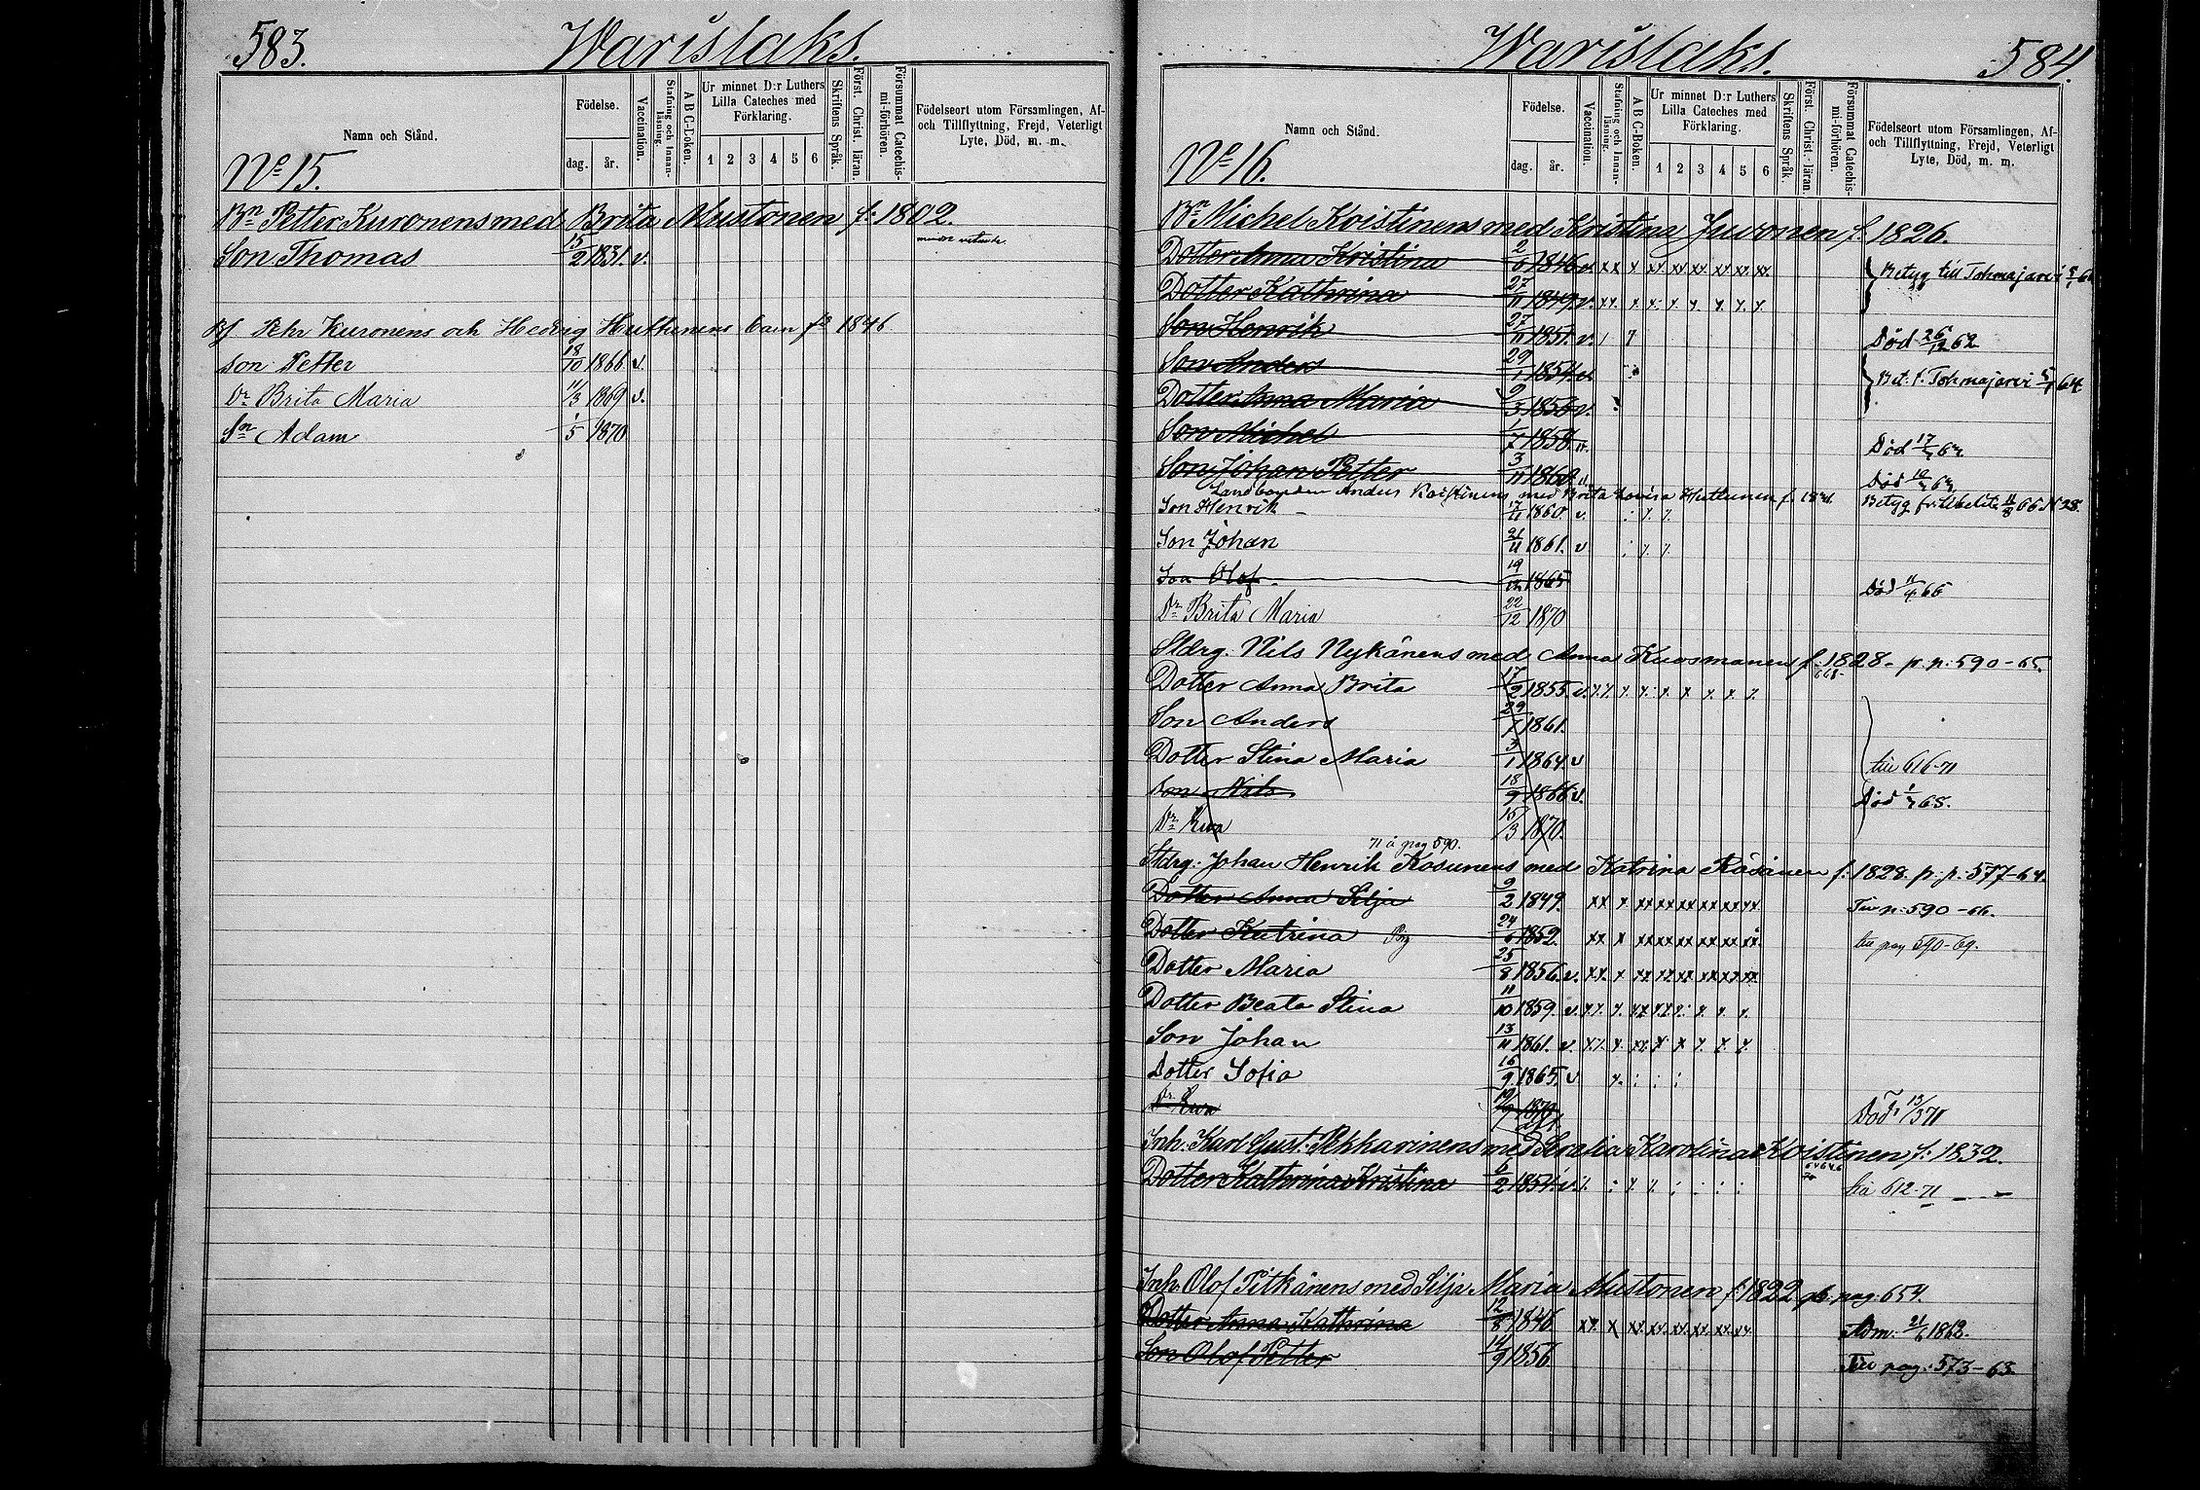 583.
Warislaks.
Namn och Stånd.
Födelse.
dag.
år.
Vaccination.
Stafning och Innanläsning.
A B C-Boken.
Ur minnet D:r Luthers Lilla Cateches med Förklaring.
1 2 3 4 5 6
Skriftens Språk.
Först. Christ. läran.
Försummat Catechismi-förhören.
Födelseort utom Församlingen, Af- och Tillflyttning, Frejd, Veterligt Lyte, Död, m. m.
No 15.
Bn Petter Kuronens med Brita Mustonen f: 1802.
Son Thomas 15/2 1831. v.
Bf Pehr Kuronens och Hedvig Huttunens barn fd 1846
son Petter 18/10 1866 v.
Dr Brita Maria 11/3 1869 v.
Sn Adam 1/5 1870
Warislaks.
584.
Namn och Stånd.
Födelse.
dag.
år.
Vaccination.
Stafning och Innanläsning.
A B C-Boken.
Ur minnet D:r Luthers Lilla Cateches med Förklaring.
1 2 3 4 5 6
Skriftens Språk
Först. Christ.-läran.
Försummat Catechismi-förhören.
Födelseort utom Församlingen, Af- och Tillflyttning, Frejd, Veterligt Lyte, Död, m. m.
No 16.
Bn Michel Koistinens med Kristina Juronen f. 1826.
Dotter Anna Kristina 2/6 1846 v. Betyg till Tohmajärvi
Dotter Kathrina 27/11 1849 v.
Son Henrik 27/11 1851. v. Död 26/12 62
Son Anders 29/1 1854 v. Bet. t. Tohmajärvi 64.
Dotter Anna Maria 9/3 1856 v.
Son Michel 1/7 1858. v. Död 17/
Son Johan Petter 3/11 1860 v. Död 10/
Landbonden Anders Koistinens med Brita Lovisa Huttunen f. Betyg fr. 11/8 66 N 28.
Son Henrik 1860. v.
Son Johan 21/11 1861. v
Son Olof 19/12 1865 Död 11/4 66
Dr Brita Maria 22/12 1870
Stdrg. Nils Nykänens med Anna Kuosmanen f. 1828 p. p: 590-65.
Dotter Anna Brita 17/2 1855. v.
Son Anders 29/7 1861.
Dotter Stina Maria 3/1 1864 v till 616-71
Son Nils 18/9 1866 v. Död 68.
Dr Ewa 15/3 1870.
71 å pag 590.
Stdrg: Johan Henrik Kosunens med Katrina Räsänen f. 1828. p. p: 577-64.
Dotter Anna Silja 9/2 1849. Till p: 590-66.
Dotter Katrina 24/6 1852. till pag 590-69.
Dotter Maria 25/8 1856. v.
Dotter Beata Stina 11/10 1859. v.
Son Johan 13/11 1861. v.
Dotter Sofia 16/9 1865. v
Dr Ewa Död 13/5 71
Inh: Karl Gust: Pekkarinens med Karolina Koistinen f: 1832.
Dotter Kathrina Kristina 6/2 1854. v. till 612-71
Inh. Olof Pitkänens med Silja Maria Mustonen f. 1822 pag. 654.
Dotter Anna Kathrina 12/8 1846 Adm. 21/6 1863.
Son Olof Petter 14/9 1856 Till pag: 573-63.